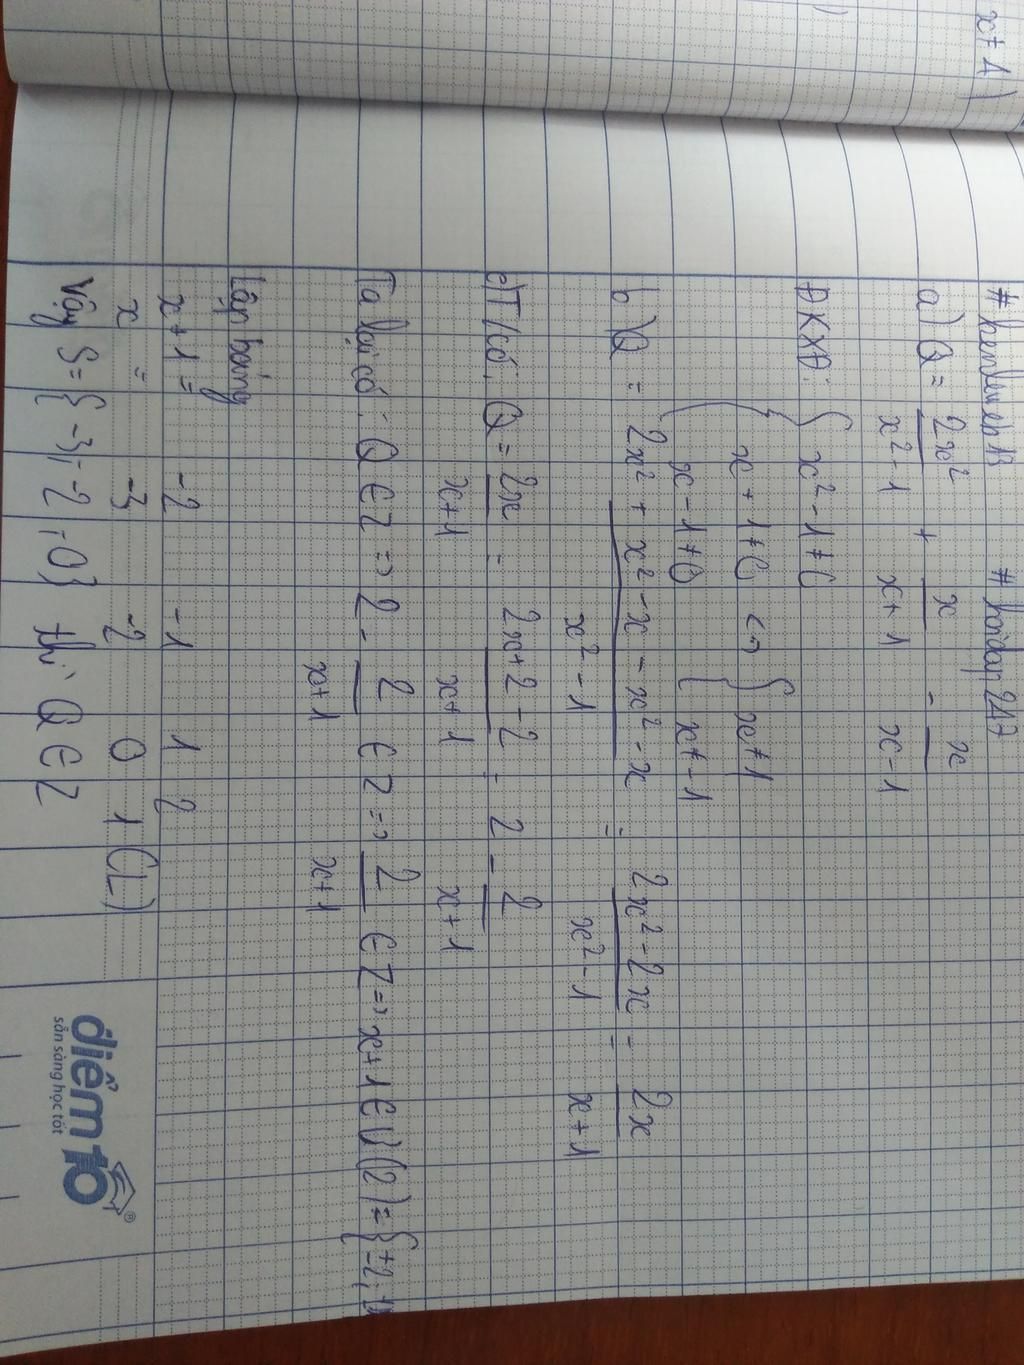 x+1)
# kembeueb13 # hoidap247
a) Q = 2x²/x²-1 + x/x+1 - x/x-1
ĐKXĐ: { x²-1≠0
{ x+1≠0 <=> { x≠1
x-1≠0 { x≠-1
b) Q = 2x²+x²-x-x²-x/x²-1 = 2x²-2x/x²-1 = 2x/x+1
c) T/có: Q = 2x/x+1 = 2x+2-2/x+1 = 2 - 2/x+1
Ta lại có: Q ∈ Z => 2 - 2/x+1 ∈ Z => 2/x+1 ∈ Z => x+1 ∈ Ư(2) = {±2;±1
Lập bảng
x+1 = -2 -1 1 2
x = -3 -2 0 1 (L)
Vậy S = { -3; -2; 0} thì Q ∈ Z
điểm 10
sẵn sàng học tốt